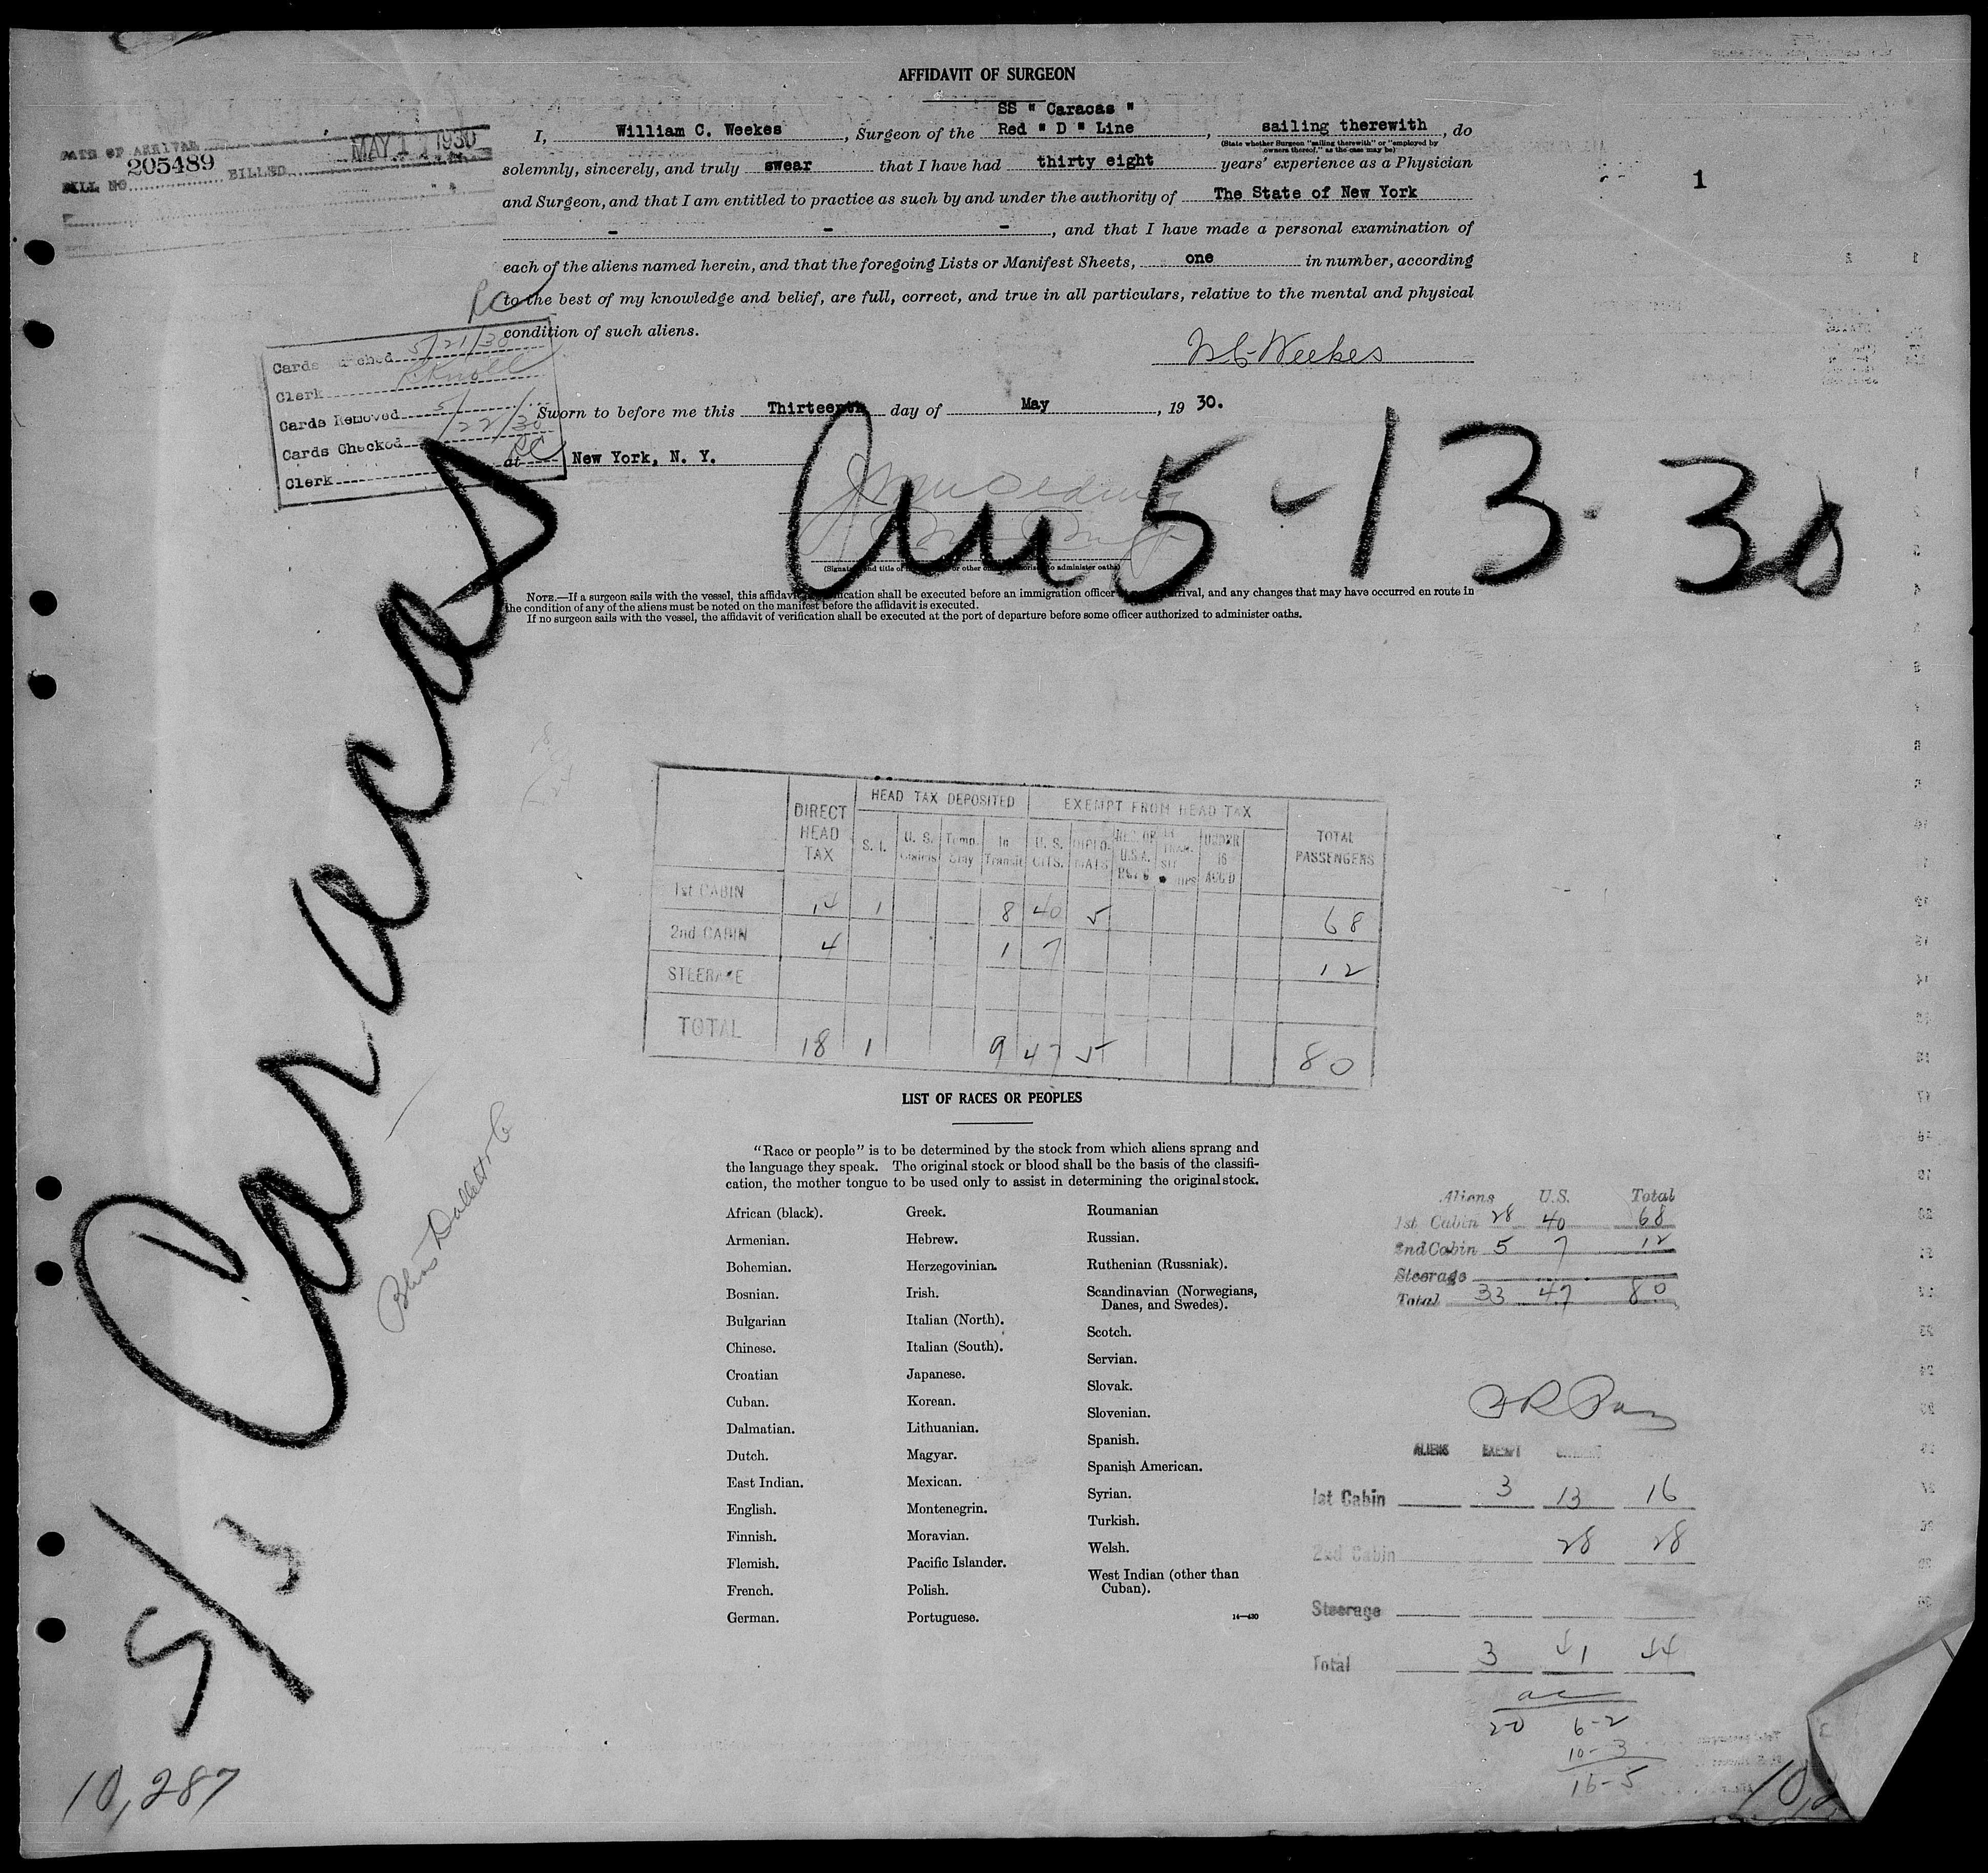 AFFIDAVIT OF SURGEON
SS " Caracas "
I, William C. Weekes, Surgeon of the Red " D " Line, sailing therewith, do
(State whether Surgeon "sailing therewith" or "employed by
owners thereof," as the case may be)
solemnly, sincerely, and truly swear that I have had thirty eight years' experience as a Physician
and Surgeon, and that I am entitled to practice as such by and under the authority of The State of New York
- - -, and that I have made a personal examination of
each of the aliens named herein, and that the foregoing Lists or Manifest Sheets, one in number, according
to the best of my knowledge and belief, are full, correct, and true in all particulars, relative to the mental and physical
condition of such aliens.
W C Weekes
Sworn to before me this Thirteenth day of May, 19 30.
at New York, N. Y.
DATE OF ARRIVAL MAY 1 1930
BILL NO. 205489 BILLED
1
RC
Cards 5/21/30
Clerk R Knoll
Cards Removed
Cards Checked 5/22/30
Clerk RC
Arr 5-13-30
NOTE.—If a surgeon sails with the vessel, this affidavit shall be executed before an immigration officer arrival, and any changes that may have occurred en route in
the condition of any of the aliens must be noted on the manifest before the affidavit is executed.
If no surgeon sails with the vessel, the affidavit of verification shall be executed at the port of departure before some officer authorized to administer oaths.
Caracas
5/3
Bliss Dallett & Co
10,287
DIRECT HEAD TAX HEAD TAX DEPOSITED EXEMPT FROM HEAD TAX TOTAL PASSENGERS
S. I. U. S. Temp. Stay In Transit U. S. CITS. DIPLOMATS U.S.A. UNDER 16 ACC'D
1st CABIN 14 1 8 40 5 68
2nd CABIN 4 1 7 12
STEERAGE
TOTAL 18 1 9 47 5 80
LIST OF RACES OR PEOPLES
"Race or people" is to be determined by the stock from which aliens sprang and
the language they speak. The original stock or blood shall be the basis of the classifi-
cation, the mother tongue to be used only to assist in determining the original stock.
African (black).
Armenian.
Bohemian.
Bosnian.
Bulgarian
Chinese.
Croatian
Cuban.
Dalmatian.
Dutch.
East Indian.
English.
Finnish.
Flemish.
French.
German.
Greek.
Hebrew.
Herzegovinian.
Irish.
Italian (North).
Italian (South).
Japanese.
Korean.
Lithuanian.
Magyar.
Mexican.
Montenegrin.
Moravian.
Pacific Islander.
Polish.
Portuguese.
Roumanian
Russian.
Ruthenian (Russniak).
Scandinavian (Norwegians,
Danes, and Swedes).
Scotch.
Servian.
Slovak.
Slovenian.
Spanish.
Spanish American.
Syrian.
Turkish.
Welsh.
West Indian (other than
Cuban).
14—430
Aliens U.S. Total
1st Cabin 28 40 68
2nd Cabin 5 7 12
Steerage
Total 33 47 80
ALIENS EXEMPT
1st Cabin 3 13 16
2nd Cabin 28 28
Steerage
Total 3 41 44
20 6-2
10-3
16-5